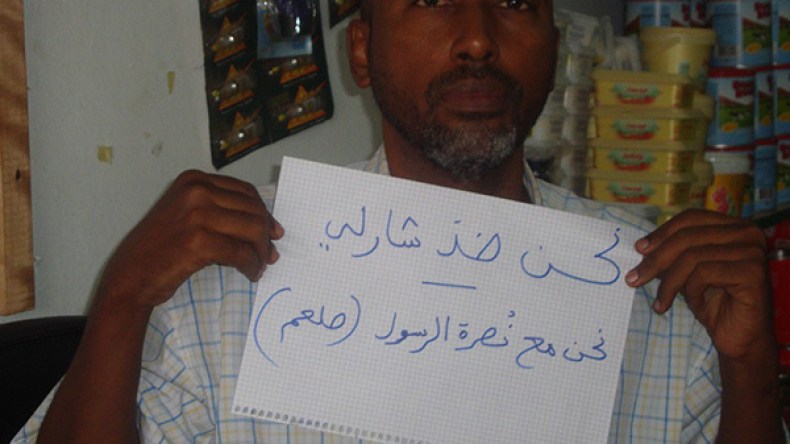 نحن ضدّ شارلي
نحن مع نُصرة الرسول (صلعم)